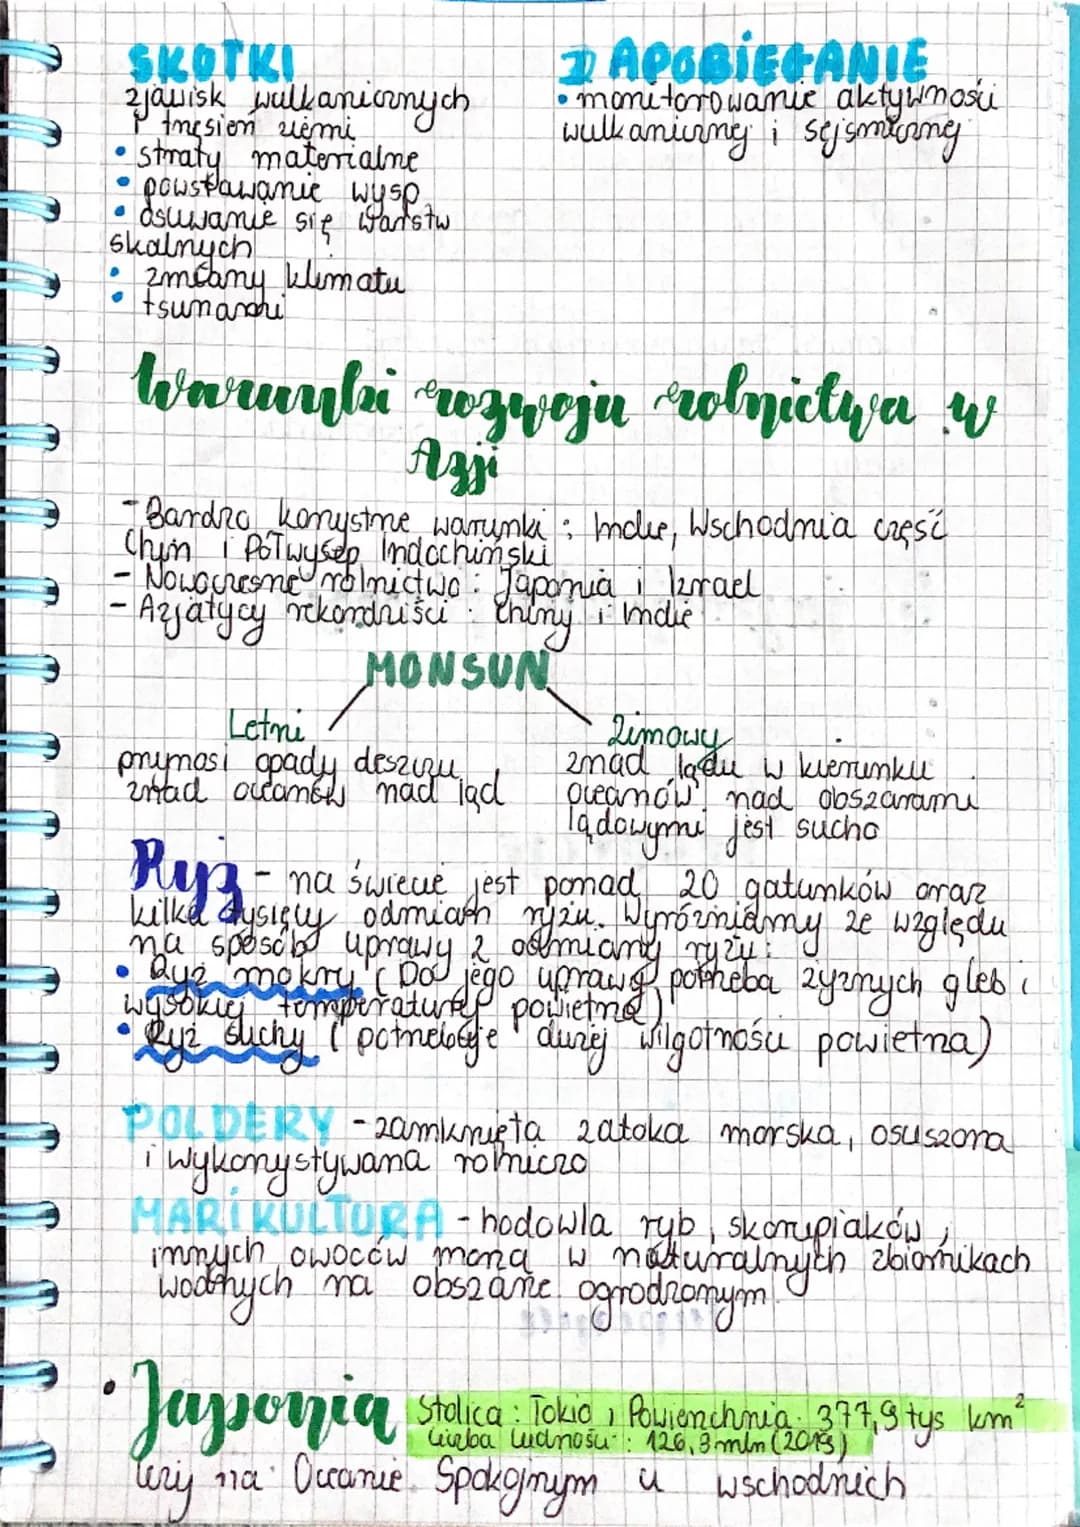 SKUTKI
zjawisk wulkanicznych
i trzęsień ziemi
• straty materialne
• powstawanie wysp
• osuwanie się warstw
skalnych
• zmiany klimatu
• tsunami
ZAPOBIEGANIE
• monitorowanie aktywności
wulkanicznej i sejsmicznej
Warunki rozwoju rolnictwa w
Azji
- Bardzo korzystne warunki : Indie, Wschodnia część
Chin i Półwysep Indochiński
- Nowoczesne rolnictwo : Japonia i Izrael
- Azjatyccy rekordziści : Chiny i Indie
MONSUN
Letni
przynosi opady deszczu
znad oceanów nad ląd
Zimowy
znad lądu w kierunku
oceanów nad obszarami
lądowymi jest sucho
Ryż - na świecie jest ponad 20 gatunków oraz
kilka tysięcy odmian ryżu. Wyróżniamy ze względu
na sposób uprawy 2 odmiany ryżu:
• Ryż mokry ( Do jego uprawy potrzeba żyznych gleb i
wysokiej temperatury powietrza)
• Ryż suchy ( potrzebuje dużej wilgotności powietrza)
POLDERY - zamknięta zatoka morska, osuszona
i wykorzystywana rolniczo
MARIKULTURA - hodowla ryb, skorupiaków,
innych owoców morza w naturalnych zbiornikach
wodnych na obszarze ogrodzonym
• Japonia Stolica : Tokio, Powierzchnia: 377,9 tys km²
Liczba ludności : 126,3 mln (2019)
leży na Oceanie Spokojnym u wschodnich